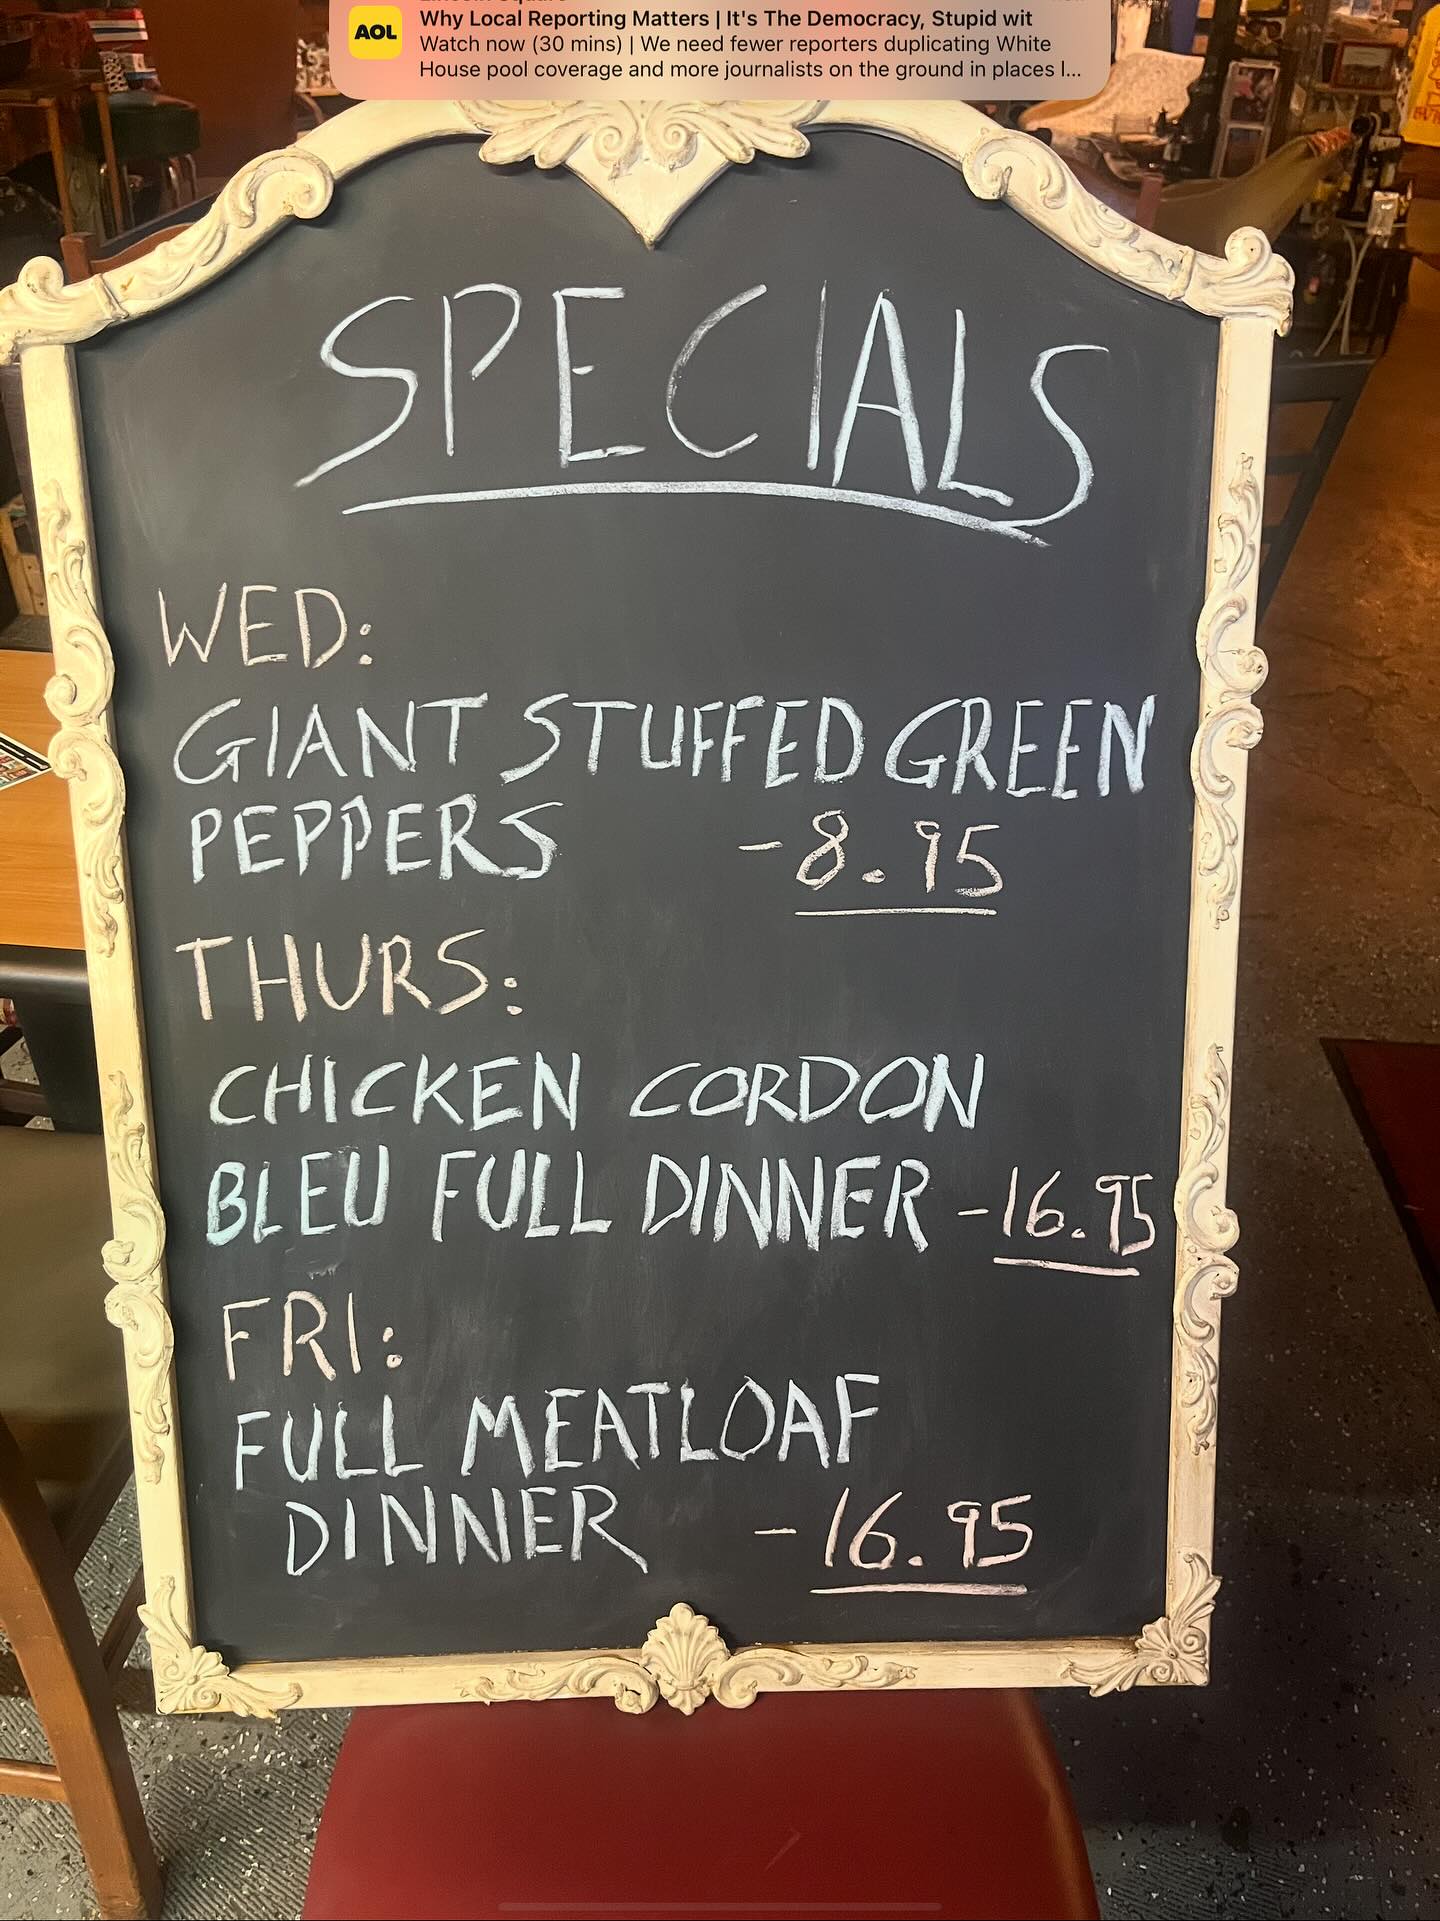 AOL
Why Local Reporting Matters | It's The Democracy, Stupid wit
Watch now (30 mins) | We need fewer reporters duplicating White
House pool coverage and more journalists on the ground in places l...
SPECIALS
WED:
GIANT STUFFED GREEN
PEPPERS -8.95
THURS:
CHICKEN CORDON
BLEU FULL DINNER -16.95
FRI:
FULL MEATLOAF
DINNER -16.95